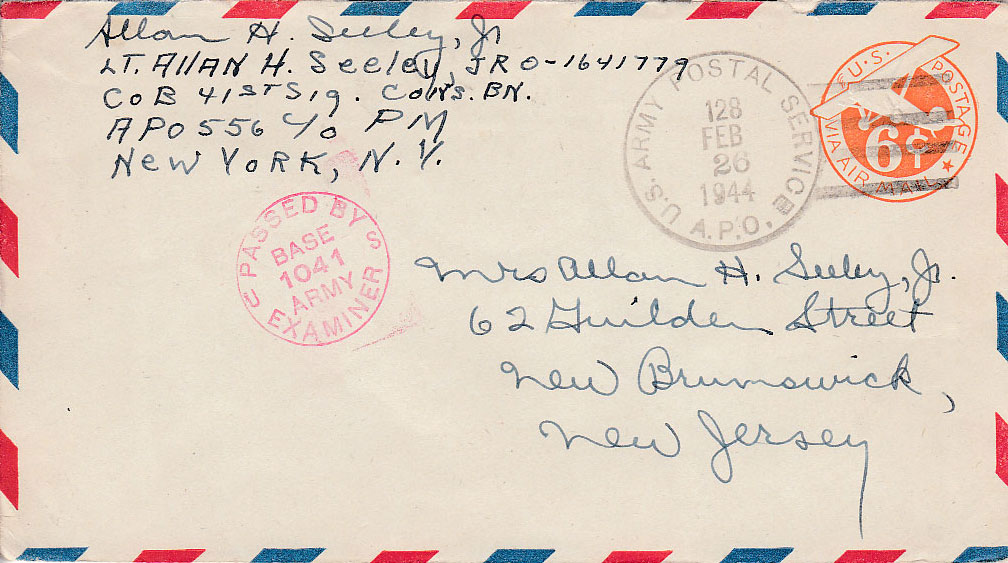 Allan H. Seeley, Jr
LT. Allan H. Seeley, JR O-1641779
Co B 41st Sig. Cons. BN.
APO 556 c/o PM
New York, N.Y.
U.S. ARMY POSTAL SERVICE
128
FEB
26
1944
A.P.O.
U.S. POSTAGE
6¢
VIA AIR MAIL
PASSED BY
U S
BASE
1041
ARMY
EXAMINER
Mrs Allan H. Seeley, Jr.
62 Guilden Street
New Brunswick,
New Jersey